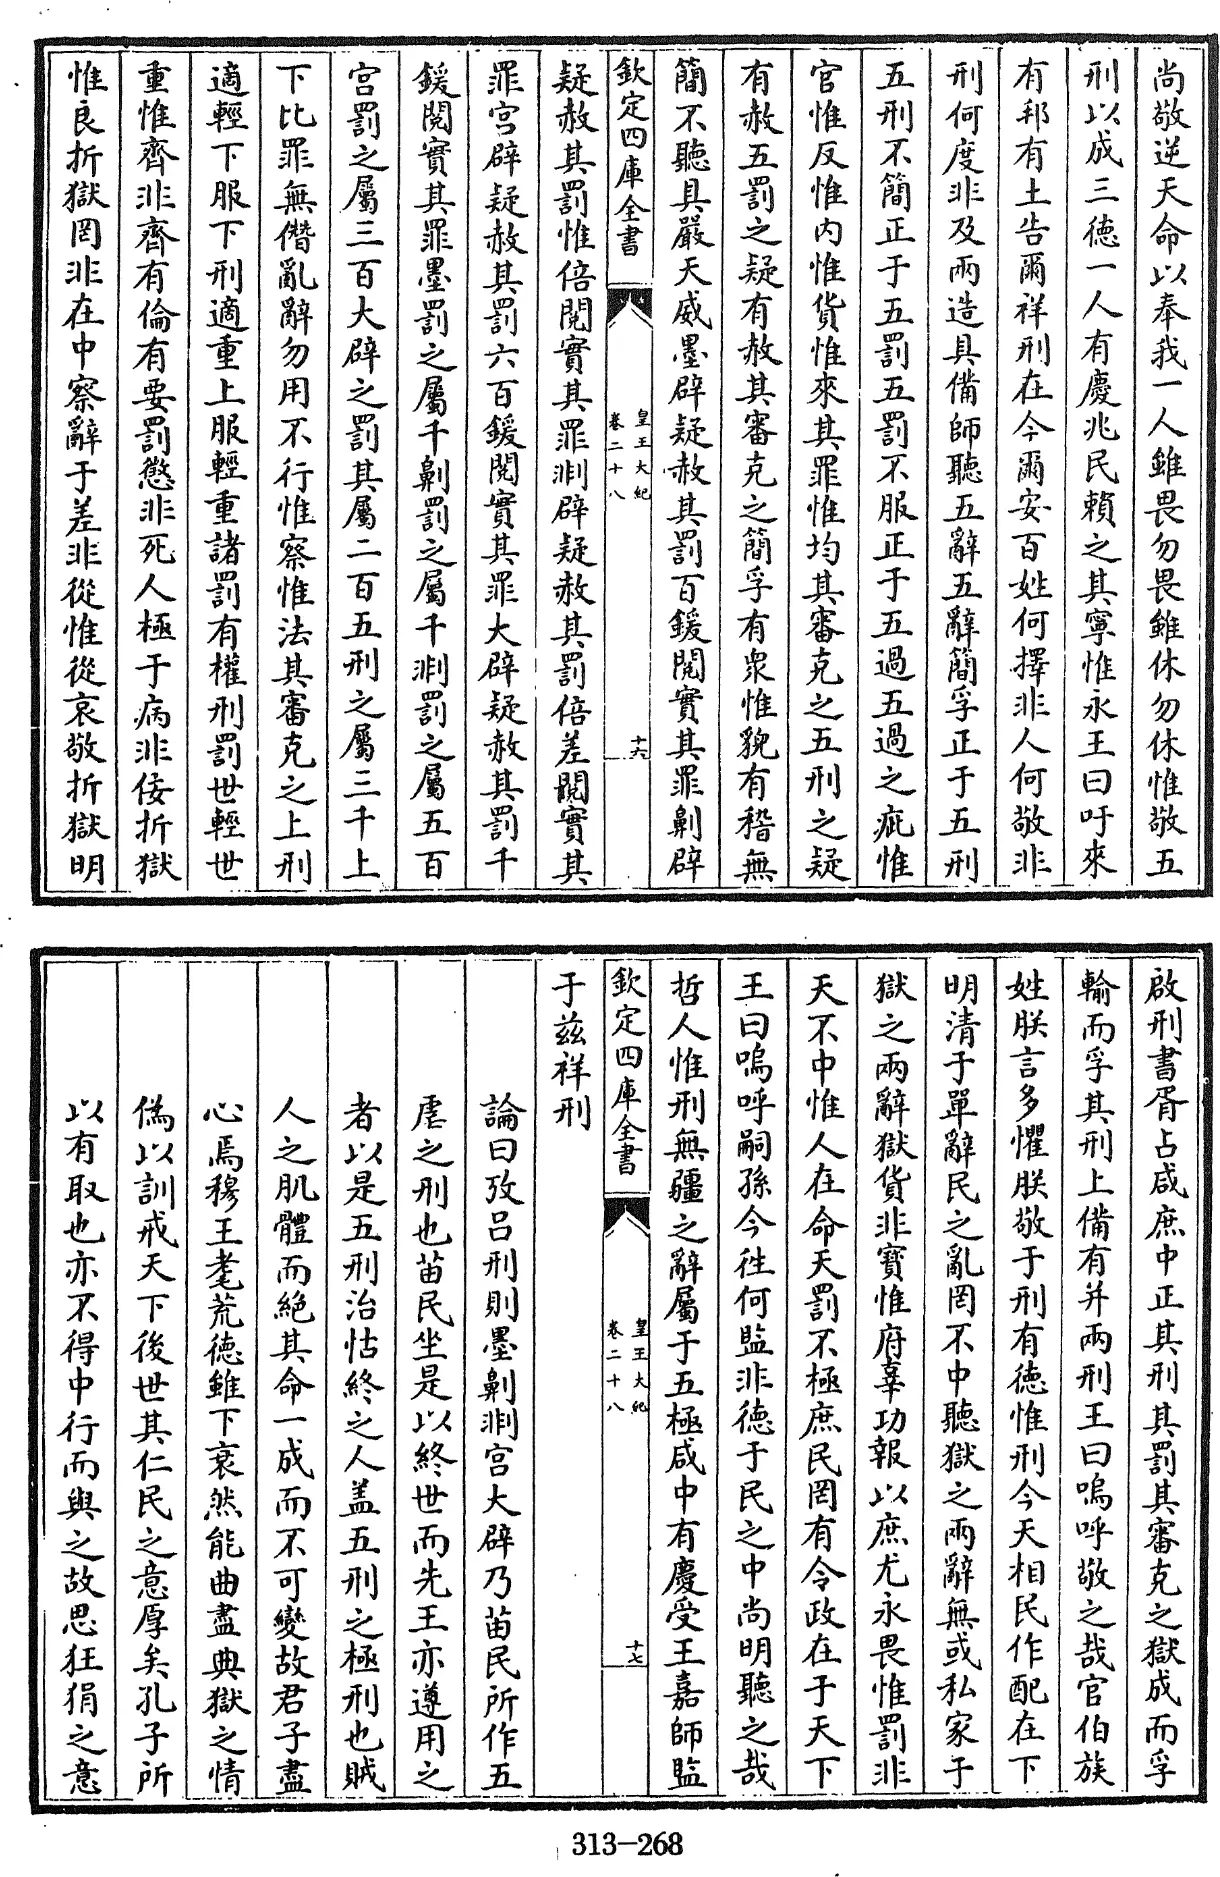 尚敬逆天命以奉我一人雖畏勿畏雖休勿休惟敬五
刑以成三德一人有慶兆民賴之其寧惟永王曰吁來
有邦有土告爾祥刑在今爾安百姓何擇非人何敬非
刑何度非及兩造具備師聽五辭五辭簡孚正于五刑
五刑不簡正于五罰五罰不服正于五過五過之疵惟
官惟反惟內惟貨惟來其罪惟均其審克之五刑之疑
有赦五罰之疑有赦其審克之簡孚有衆惟貌有稽無
簡不聽具嚴天威墨辟疑赦其罰百鍰閱實其罪劓辟
欽定四庫全書
皇王大紀
卷二十八
十六
疑赦其罰惟倍閱實其罪剕辟疑赦其罰倍差閱實其
罪宮辟疑赦其罰六百鍰閱實其罪大辟疑赦其罰千
鍰閱實其罪墨罰之屬千劓罰之屬千剕罰之屬五百
宮罰之屬三百大辟之罰其屬二百五刑之屬三千上
下比罪無僭亂辭勿用不行惟察惟法其審克之上刑
適輕下服下刑適重上服輕重諸罰有權刑罰世輕世
重惟齊非齊有倫有要罰懲非死人極于病非佞折獄
惟良折獄罔非在中察辭于差非從惟從哀敬折獄明
啟刑書胥占咸庶中正其刑其罰其審克之獄成而孚
輸而孚其刑上備有并兩刑王曰嗚呼敬之哉官伯族
姓朕言多懼朕敬于刑有德惟刑今天相民作配在下
明清于單辭民之亂罔不中聽獄之兩辭無或私家于
獄之兩辭獄貨非寶惟府辜功報以庶尤永畏惟罰非
天不中惟人在命天罰不極庶民罔有令政在于天下
王曰嗚呼嗣孫今徃何監非德于民之中尚明聽之哉
哲人惟刑無疆之辭屬于五極咸中有慶受王嘉師監
欽定四庫全書
皇王大紀
卷二十八
十七
于茲祥刑
論曰攷呂刑則墨劓剕宮大辟乃苗民所作五
虐之刑也苗民坐是以終世而先王亦遵用之
者以是五刑治怙終之人盖五刑之極刑也賊
人之肌體而絕其命一成而不可變故君子盡
心焉穆王耄荒德雖下衰然能曲盡典獄之情
偽以訓戒天下後世其仁民之意厚矣孔子所
以有取也亦不得中行而與之故思狂狷之意
313-268